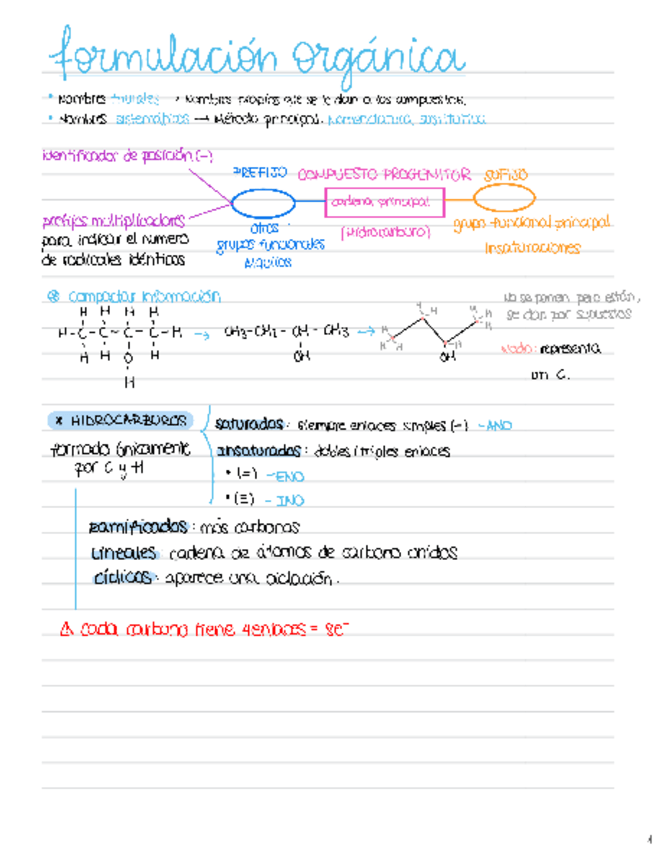 formulación orgánica
* Nombres triviales → Nombres propios que se le dan a los compuestos.
* Nombres sistemáticos → Método principal. Nomenclatura sustitutiva
identificador de posición (-)
PREFIJO COMPUESTO PROGENITOR SUFIJO
cadena principal
prefijos multiplicadores
para indicar el número
de radicales idénticos
otros
grupos funcionales
(Hidrocarburo)
grupo funcional principal
Insaturaciones
compactar información
No se ponen pero están,
se dan por supuestos
H H H H
H-C-C-C-C-H → CH3-CH2-CH-CH3 →
H H O H
OH
OH
H
H
H
H
H
H
H
Nodo: representa
un C.
* HIDROCARBUROS
formado únicamente
por C y H
saturados: siempre enlaces simples (-) -ANO
Insaturados: dobles/triples enlaces
• (=) -ENO
• (≡) - INO
Ramificados: más carbonos
Lineales: cadena de átomos de carbono unidos
cíclicos: aparece una ciclación.
⚠ cada carbono tiene 4 enlaces = 8e⁻